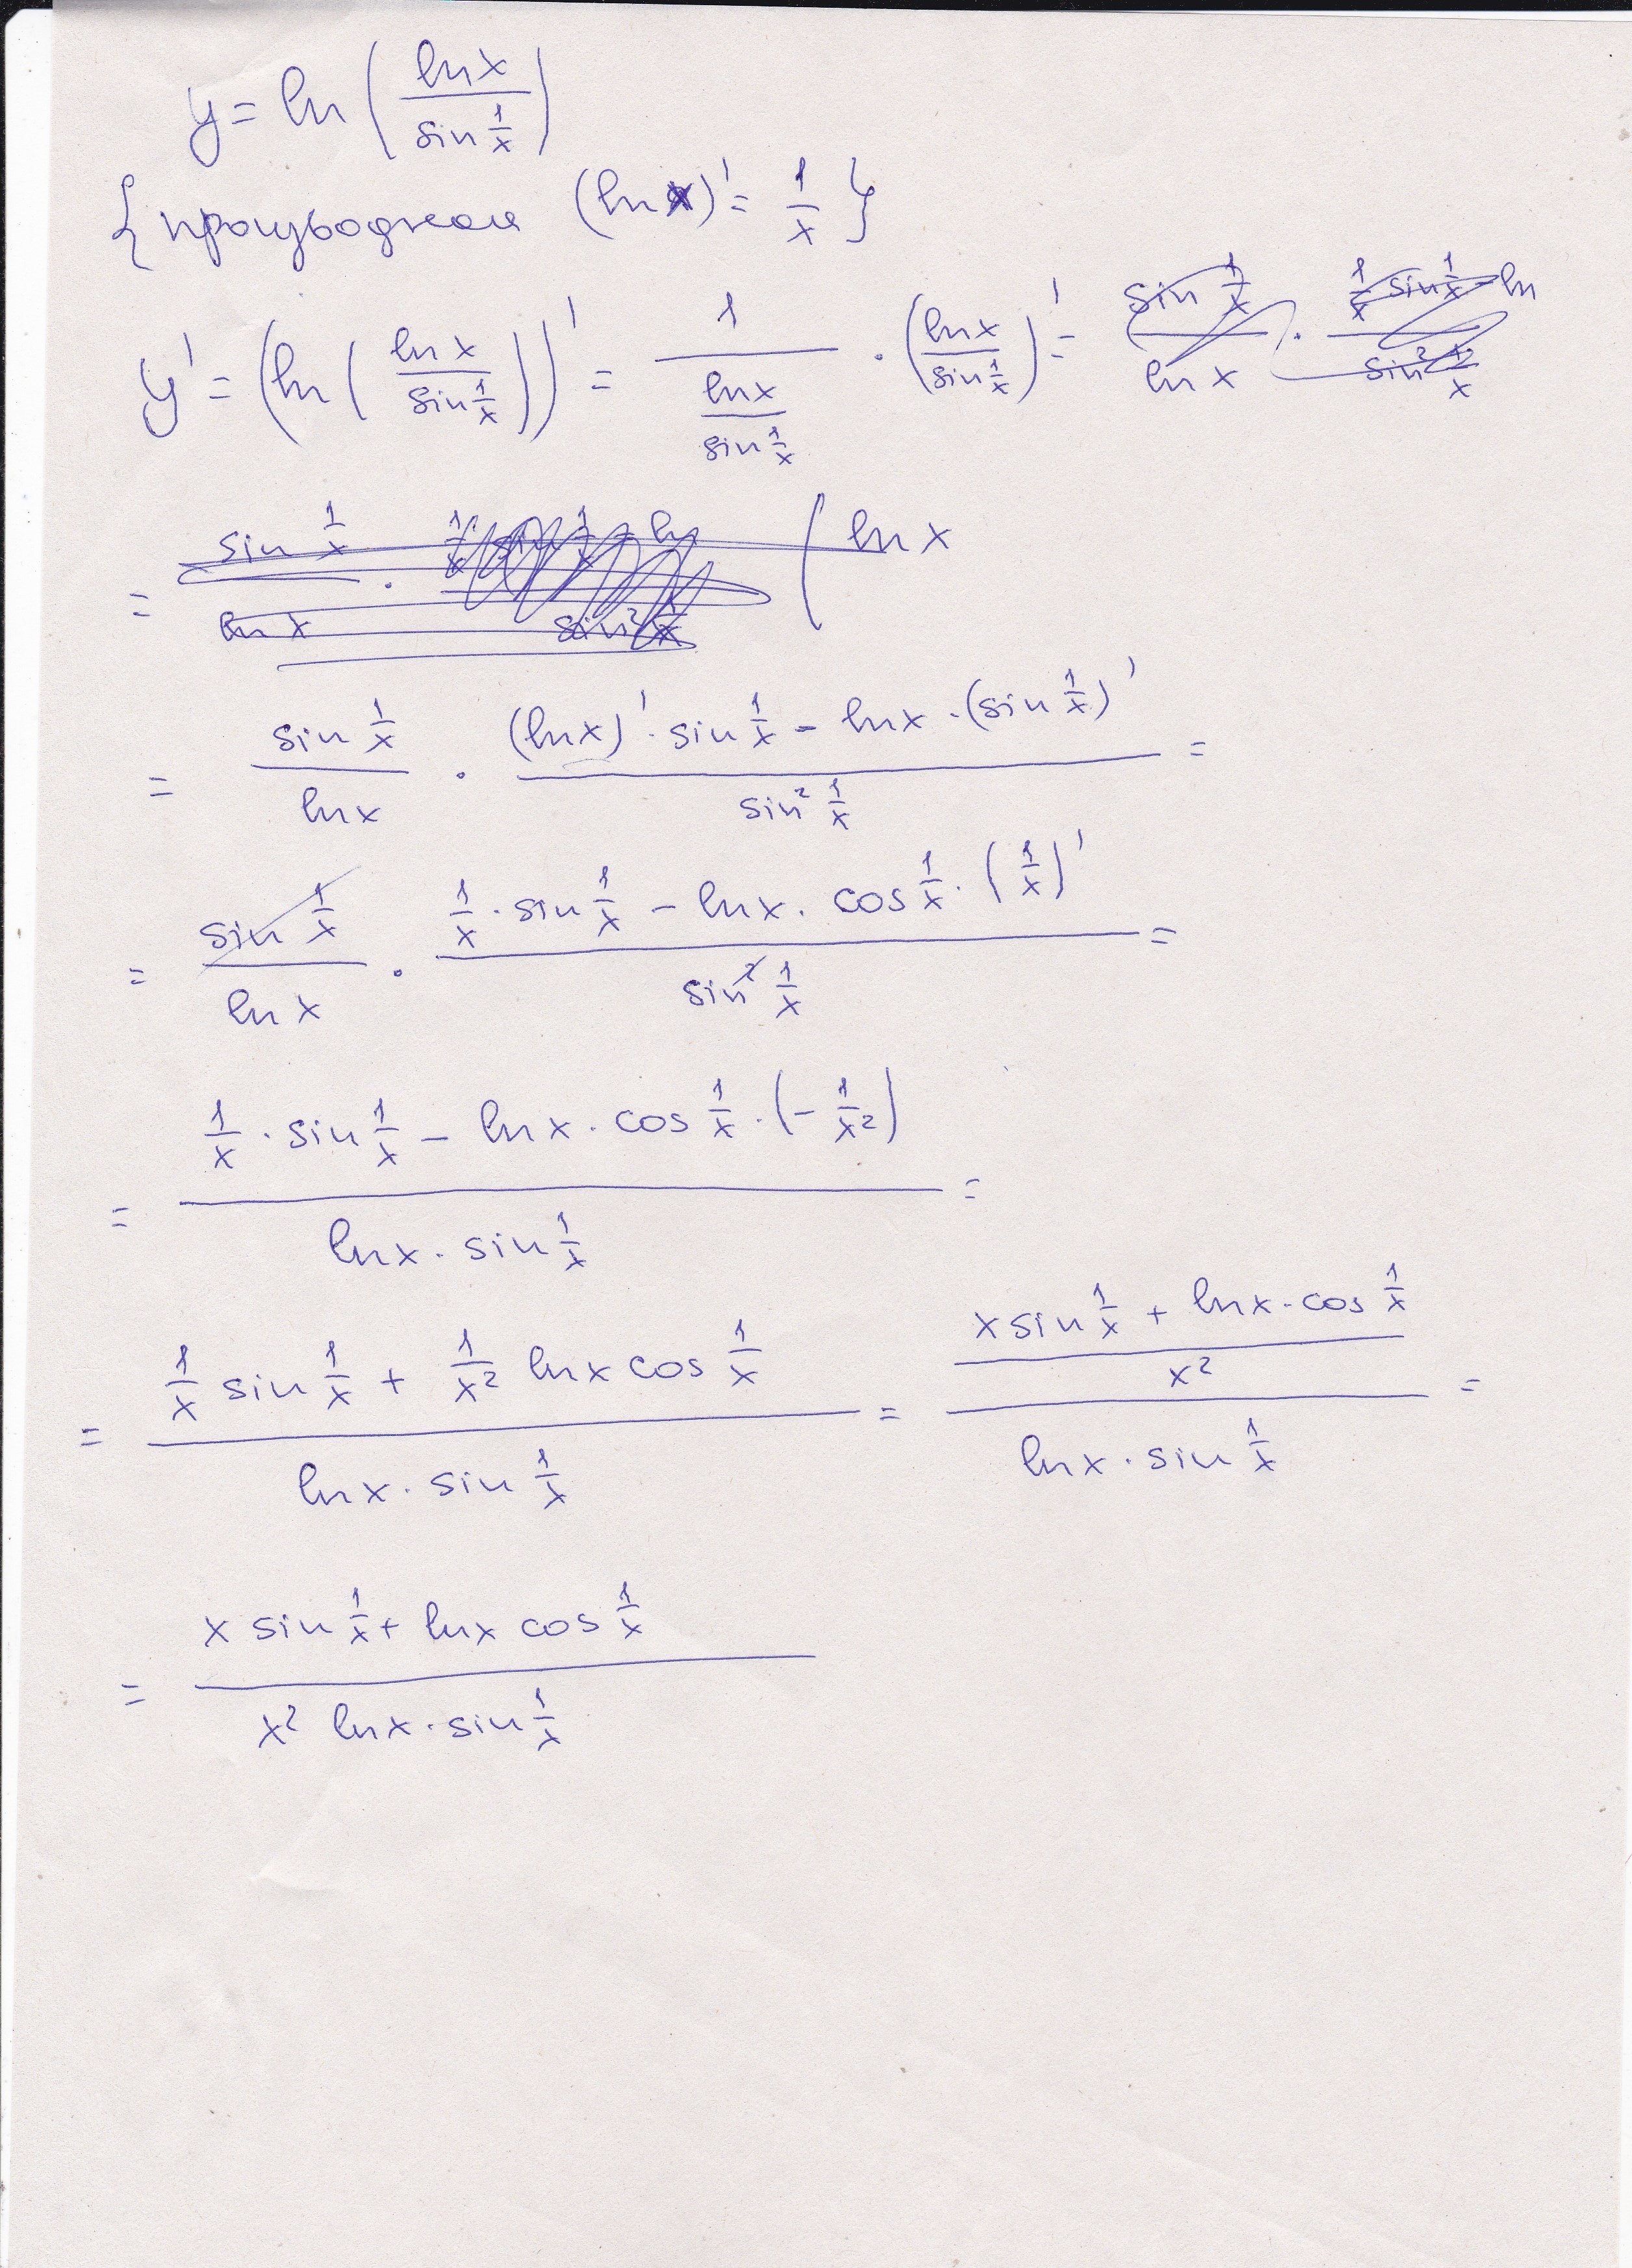 y = ln ( ln x / sin 1/x )
{ производная (ln x)' = 1/x }
y' = ( ln ( ln x / sin 1/x ) )' = 1 / ( ln x / sin 1/x ) · ( ln x / sin 1/x )' = sin 1/x / ln x · ( 1/x sin 1/x - ln ) / sin² 1/x
= sin 1/x / ln x · ( 1/x · sin 1/x - ln ) / sin² 1/x ( ln x
= sin 1/x / ln x · ( (ln x)' · sin 1/x - ln x · (sin 1/x)' ) / sin² 1/x =
= sin 1/x / ln x · ( 1/x · sin 1/x - ln x · cos 1/x · (1/x)' ) / sin² 1/x =
= ( 1/x · sin 1/x - ln x · cos 1/x · (- 1/x²) ) / ( ln x · sin 1/x ) =
= ( 1/x sin 1/x + 1/x² ln x cos 1/x ) / ( ln x · sin 1/x ) = ( ( x sin 1/x + ln x · cos 1/x ) / x² ) / ( ln x · sin 1/x ) =
= ( x sin 1/x + ln x cos 1/x ) / ( x² ln x · sin 1/x )